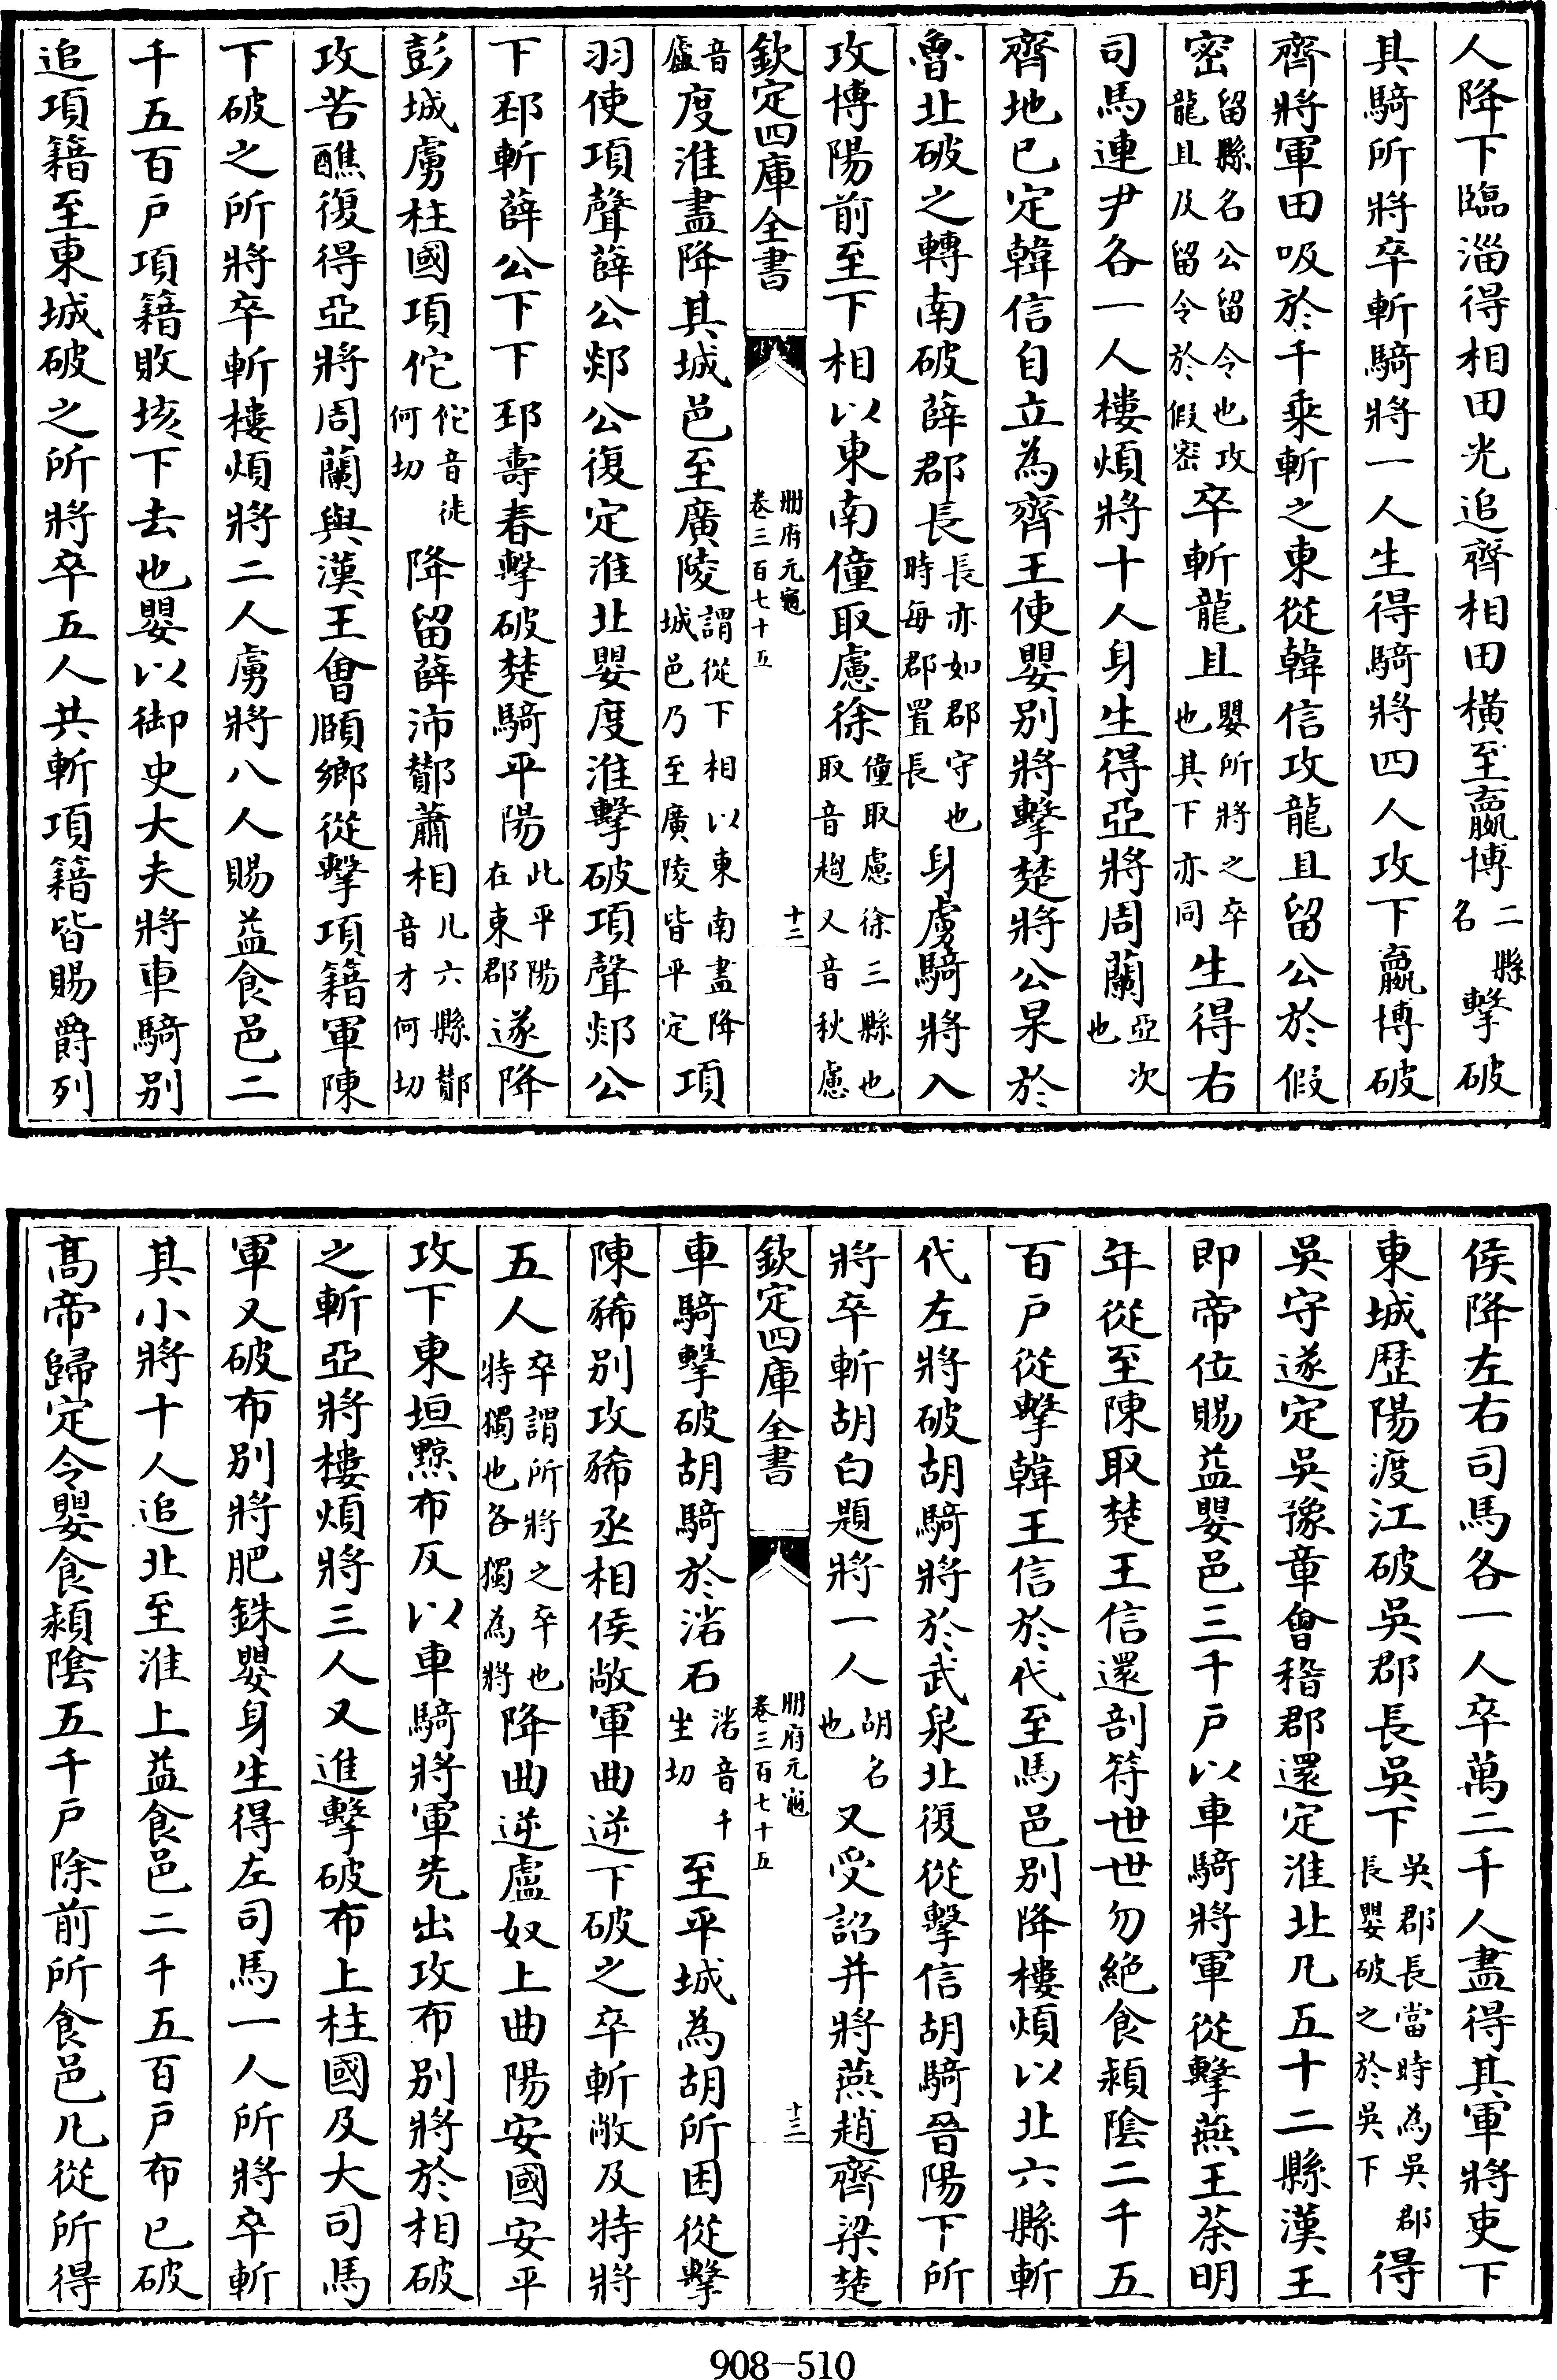 人降下臨淄得相田光追齊相田橫至嬴博二縣名擊破
其騎所將卒斬騎將一人生得騎將四人攻下嬴博破
齊將軍田吸於千乘斬之東從韓信攻龍且留公於假
密留縣名公留令也攻龍且及留令於假密卒斬龍且嬰所將之卒也其下亦同生得右
司馬連尹各一人樓煩將十人身生得亞將周蘭亞次也
齊地已定韓信自立為齊王使嬰别將擊楚將公杲於
魯北破之轉南破薛郡長長亦如郡守也時每郡置長身虜騎將入
攻博陽前至下相以東南僮取慮徐僮取慮徐三縣也取音趨又音秋慮
欽定四庫全書
冊府元龜
卷三百七十五
十二
音廬度淮盡降其城邑至廣陵謂從下相以東南盡降城邑乃至廣陵皆平定項
羽使項聲薛公郯公復定淮北嬰度淮擊破項聲郯公
下邳斬薛公下下邳壽春擊破楚騎平陽此平陽在東郡遂降
彭城虜柱國項佗佗音徒何切降留薛沛酇蕭相凡六縣酇音才何切
攻苦醮復得亞將周蘭與漢王會頥鄉從擊項籍軍陳
下破之所將卒斬樓煩將二人虜將八人賜益食邑二
千五百戶項籍敗垓下去也嬰以御史大夫將車騎别
追項籍至東城破之所將卒五人共斬項籍皆賜爵列
侯降左右司馬各一人卒萬二千人盡得其軍將吏下
東城歷陽渡江破吳郡長吳下吳郡長當時為吳郡長嬰破之於吳下得
吳守遂定吳豫章會稽郡還定淮北凡五十二縣漢王
即帝位賜益嬰邑三千戶以車騎將軍從擊燕王荼明
年從至陳取楚王信還剖符世世勿絶食潁隂二千五
百戶從擊韓王信於代至馬邑别降樓煩以北六縣斬
代左將破胡騎將於武泉北復從擊信胡騎晉陽下所
將卒斬胡白題將一人胡名也又受詔并將燕趙齊梁楚
欽定四庫全書
冊府元龜
卷三百七十五
十三
車騎擊破胡騎於硰石硰音千坐切至平城為胡所困從擊
陳豨别攻豨丞相侯敞軍曲逆下破之卒斬敞及特將
五人卒謂所將之卒也特獨也各獨為將降曲逆盧奴上曲陽安國安平
攻下東垣黥布反以車騎將軍先出攻布别將於相破
之斬亞將樓煩將三人又進擊破布上柱國及大司馬
軍又破布别將肥銖嬰身生得左司馬一人所將卒斬
其小將十人追北至淮上益食邑二千五百戶布已破
髙帝歸定令嬰食潁隂五千戶除前所食邑凡從所得
908-510